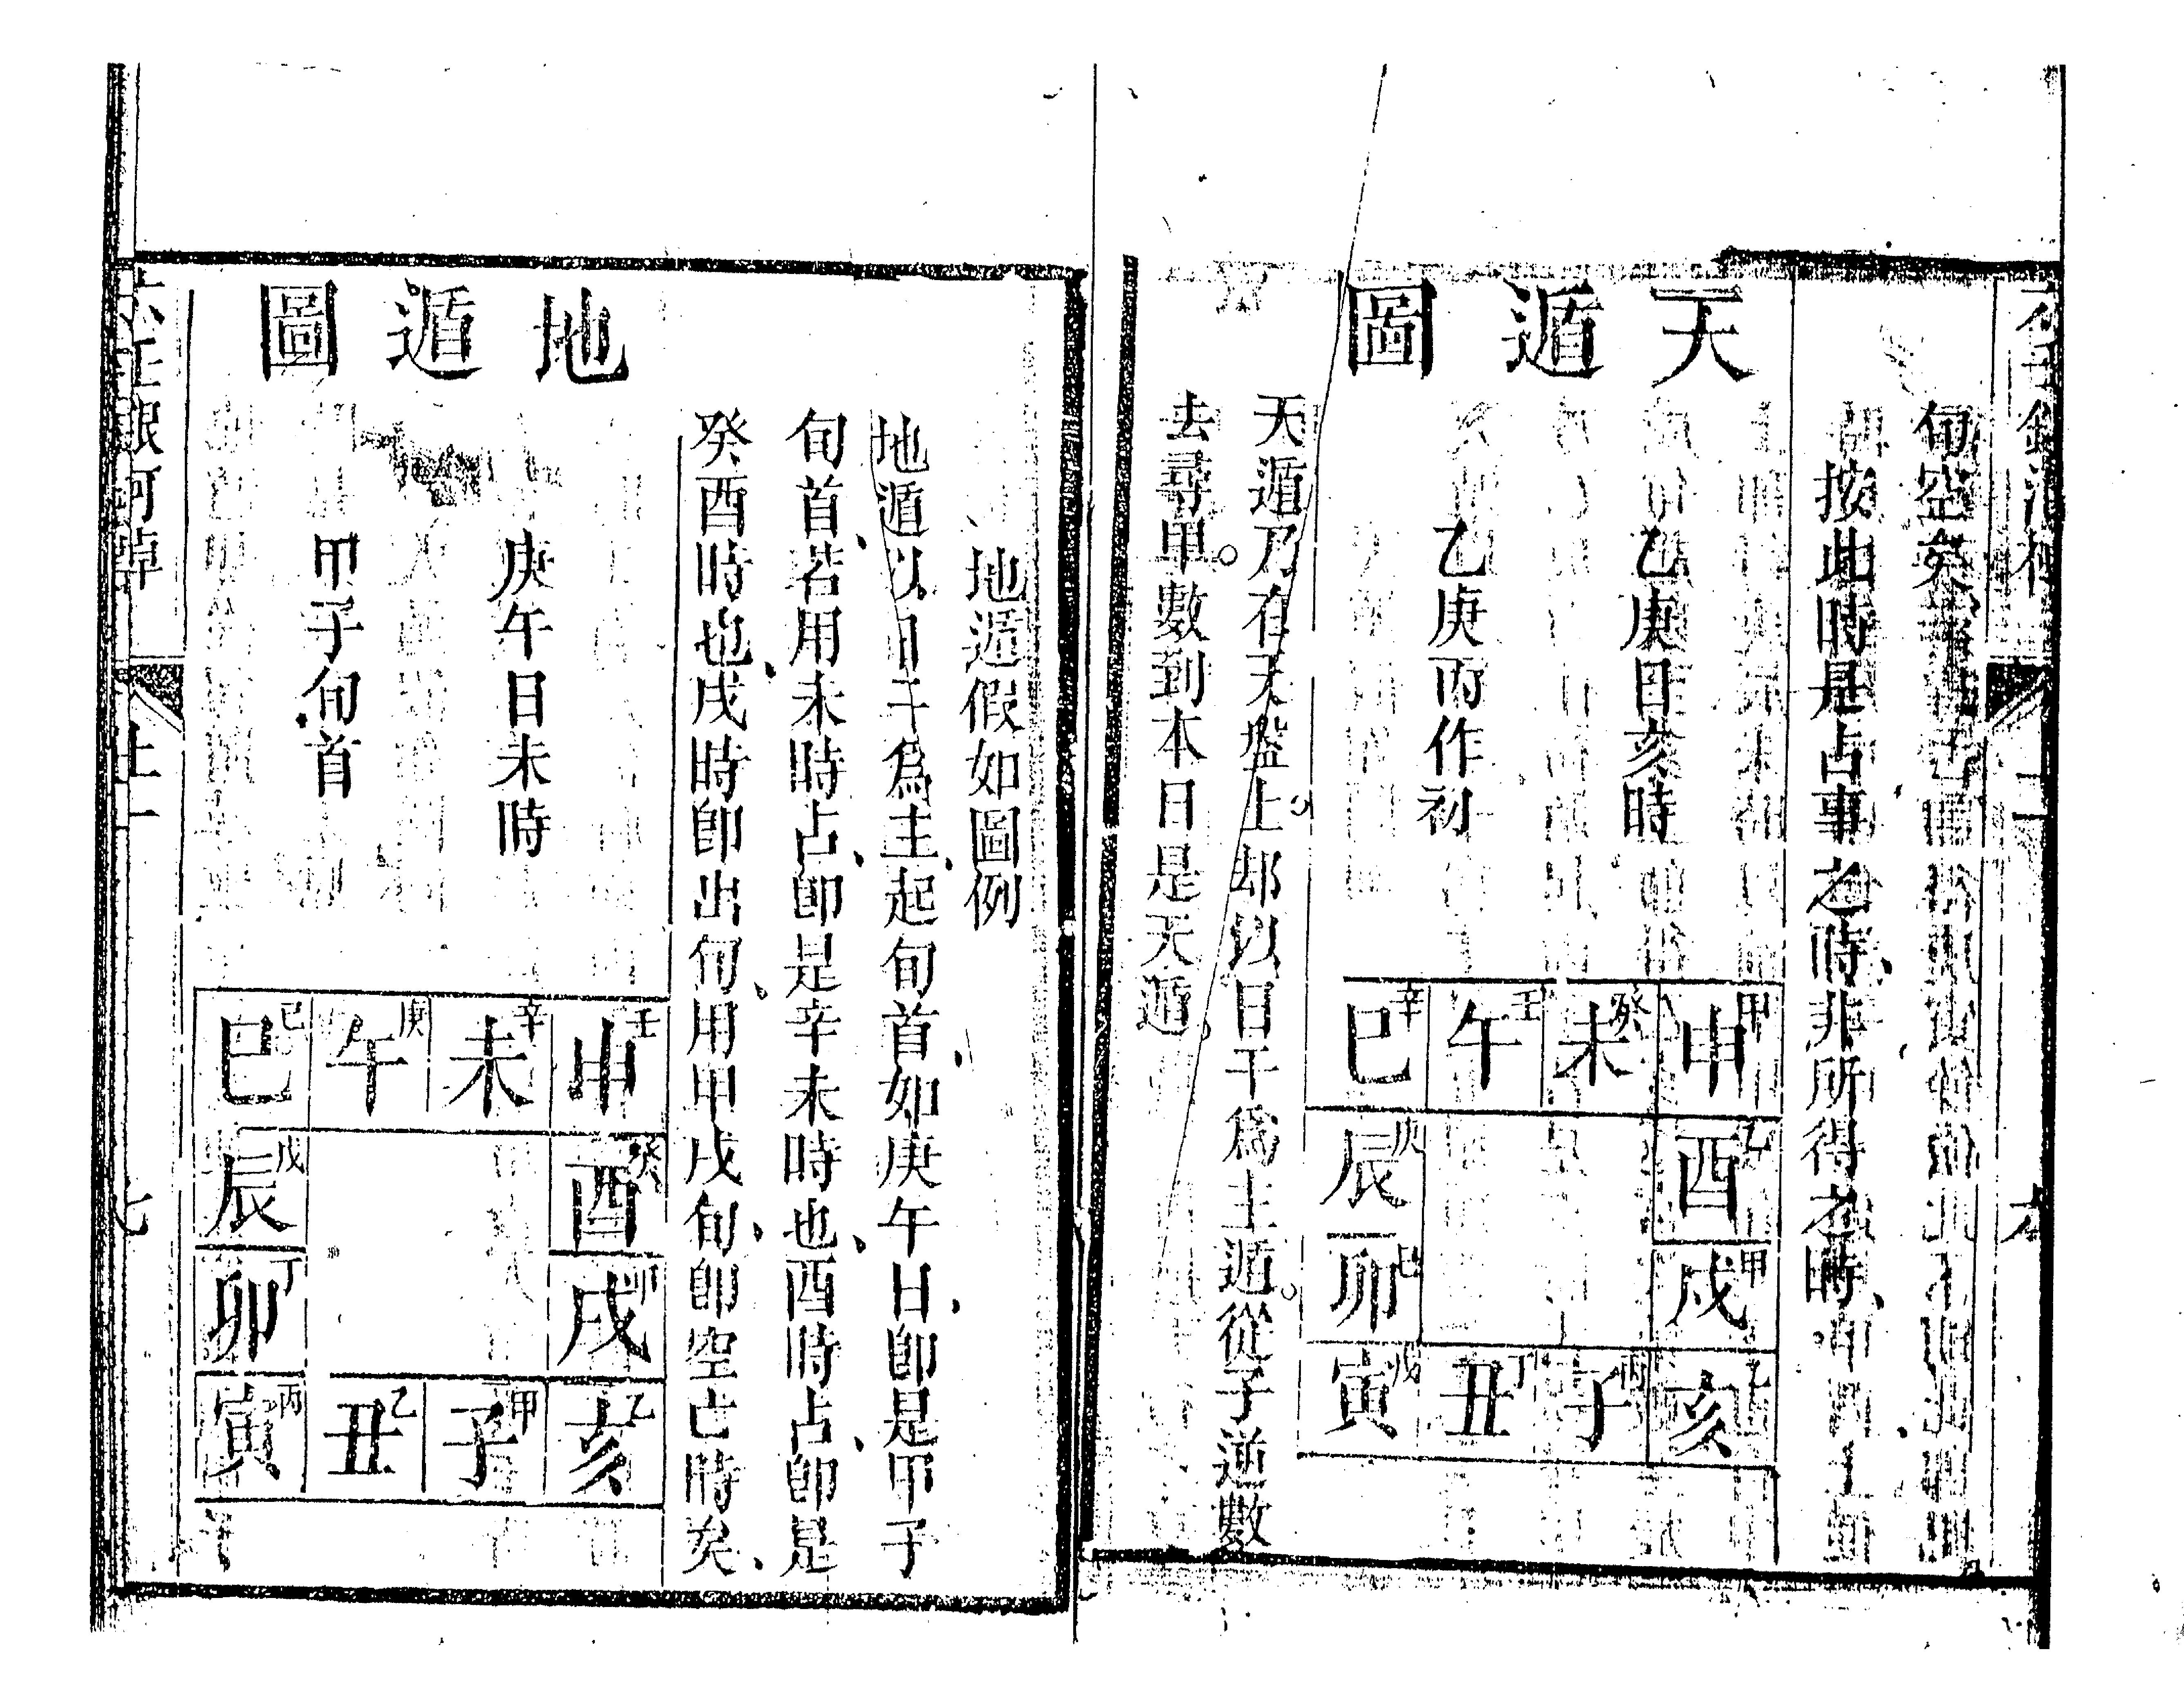 旬空矣
按此時是占事之時非所得之時
天遁圖
乙庚日亥時
乙庚丙作初
辛 壬 癸 甲
巳 午 未 申
庚 乙
辰 酉
己 甲
卯 戌
戊 丁 丙 乙
寅 丑 子 亥
天遁乃在天盤上却以日干為主遁從子逆數
去尋甲數到本日是天遁
地遁假如圖例
地遁以日干為主起旬首如庚午日即是甲子
旬首若用未時占即是辛未時也酉時占即是
癸酉時也戌時即出旬用甲戌旬即空亡時矣
地遁圖
庚午日未時
甲子旬首
己 庚 辛 壬
巳 午 未 申
戊 癸
辰 酉
丁 甲
卯 戌
丙 乙 甲 乙
寅 丑 子 亥
六壬銀河棹
上
七